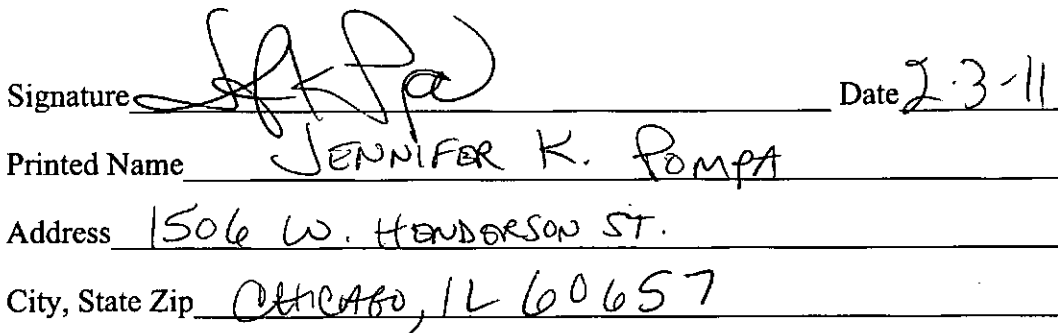 Signature Date 2-3-11
Printed Name JENNIFER K. POMPA
Address 1506 W. HENDERSON ST.
City, State Zip CHICAGO, IL 60657